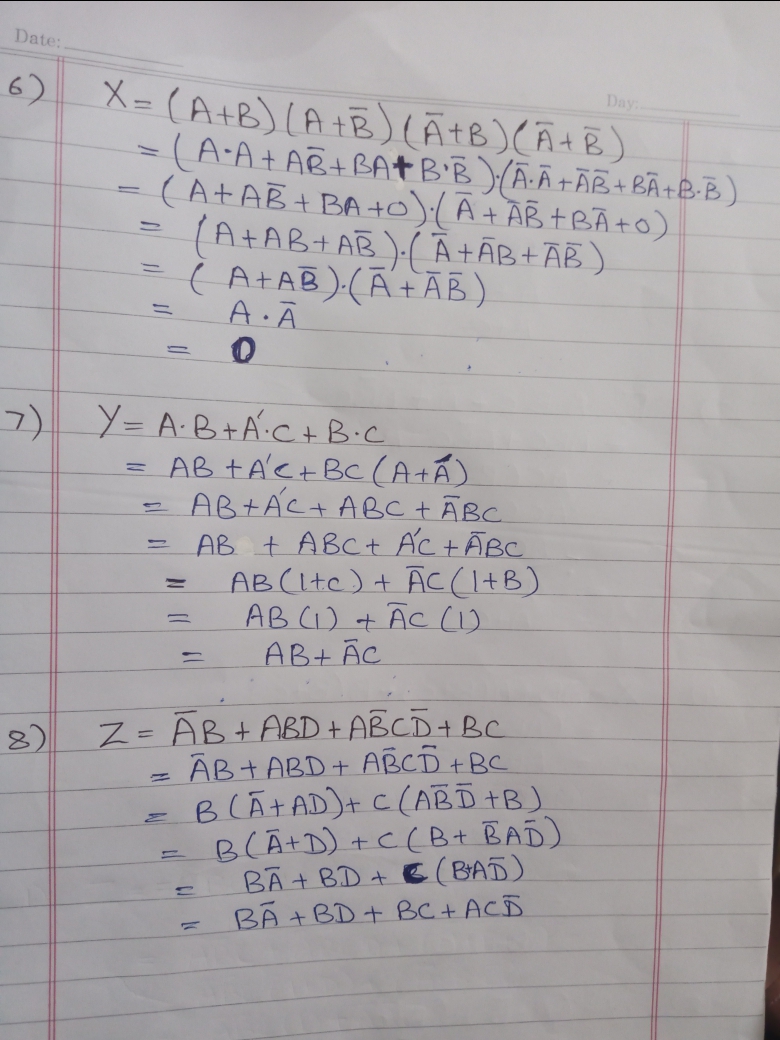 Date:
Day:
6) X = (A+B)(A+B̅)(A̅+B)(A̅+B̅)
= (A·A + AB̅ + BA + B·B̅)·(A̅·A̅ + A̅B̅ + BA̅ + B·B̅)
= (A + AB̅ + BA + 0)·(A̅ + A̅B̅ + BA̅ + 0)
= (A + AB + AB̅)·(A̅ + A̅B + A̅B̅)
= (A + AB̅)·(A̅ + A̅B̅)
= A·A̅
= 0
7) Y = A·B + A'·C + B·C
= AB + A'C + BC(A + A̅)
= AB + A'C + ABC + A̅BC
= AB + ABC + A'C + A̅BC
= AB(1+C) + A̅C(1+B)
= AB(1) + A̅C(1)
= AB + A̅C
8) Z = A̅B + ABD + AB̅CD̅ + BC
= A̅B + ABD + AB̅CD̅ + BC
= B(A̅ + AD) + C(AB̅D̅ + B)
= B(A̅ + D) + C(B + B̅AD̅)
= BA̅ + BD + C(B+AD̅)
= BA̅ + BD + BC + ACD̅